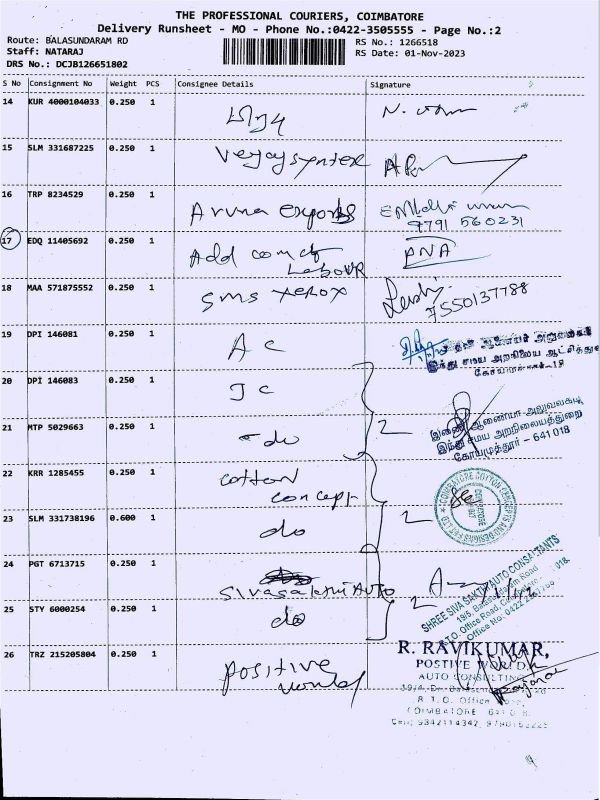 THE PROFESSIONAL COURIERS, COIMBATORE
Delivery Runsheet - MO - Phone No.:0422-3505555 - Page No.:2
Route: BALASUNDARAM RD
RS No.: 1266518
Staff: NATARAJ
RS Date: 01-Nov-2023
DRS No.: DCJB126651802
S No Consignment No Weight PCS Consignee Details Signature
14 KUR 4000104033 0.250 1
15 SLM 331687225 0.250 1
16 TRP 8234529 0.250 1 Aruna exports
9791 560231
17 EDQ 11405692 0.250 1 Add com of
Labour
PNA
18 MAA 571875552 0.250 1 sms xerox
7550137788
19 DPI 146081 0.250 1 A c
இந்து சமய அறநிலைய
20 DPI 146083 0.250 1 J c
21 MTP 5029663 0.250 1 - do 2
இணை ஆணையர் அலுவலகம்
இந்து சமய அறநிலையத்துறை
கோயமுத்தூர் - 641 018
22 KRR 1285455 0.250 1 cotton
concept
COIMBATORE COTTON CONCEPTS AND DESIGNS PVT LTD
23 SLM 331738196 0.600 1 do 2
24 PGT 6713715 0.250 1
Sivasakthi AUTO
SHREE SIVA SAKTHI AUTO CONSULTANTS
25 STY 6000254 0.250 1 do 2
26 TRZ 215205804 0.250 1 positive
world
R. RAVIKUMAR,
POSTIVE WORLD,
AUTO CONSULTING
R. T. O. Office
COIMBATORE
Cell: 9342114342,